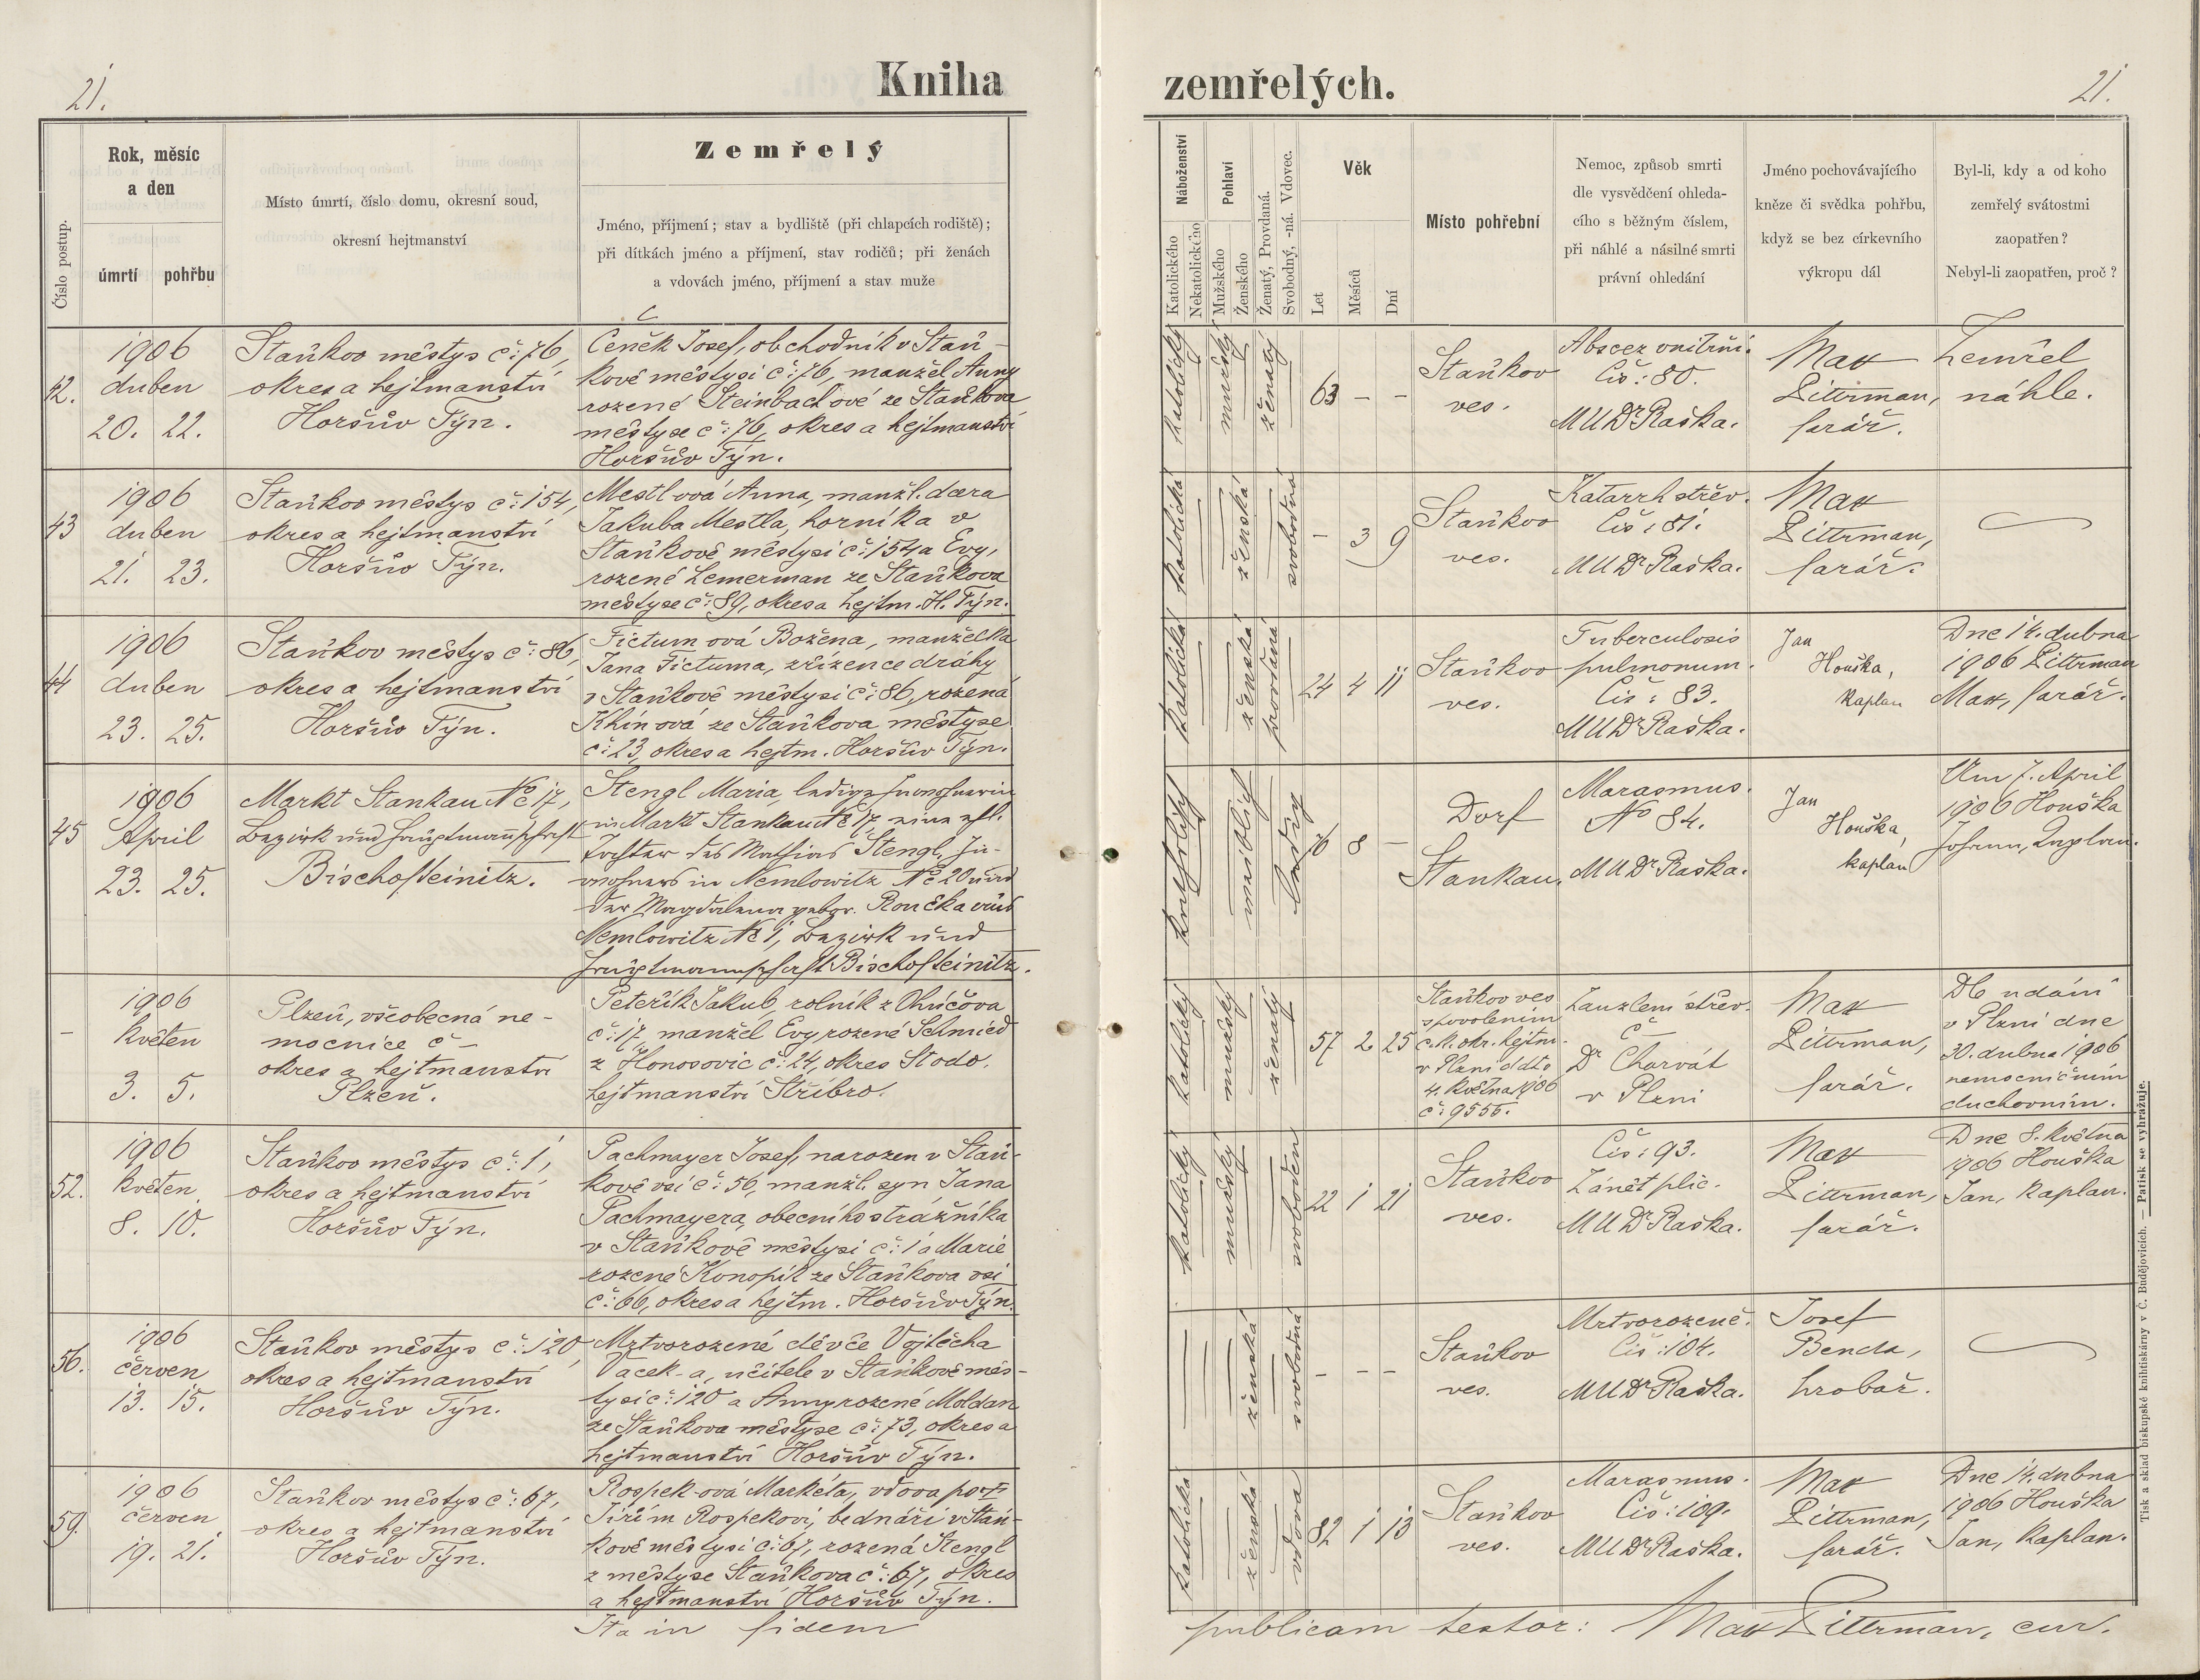 21.
Kniha
zemřelých.
21.
Číslo postup.
Rok, měsíc
a den
úmrtí
pohřbu
Místo úmrtí, číslo domu, okresní soud,
okresní hejtmanství
Zemřelý
Jméno, příjmení; stav a bydliště (při chlapcích rodiště);
při dítkách jméno a příjmení, stav rodičů; při ženách
a vdovách jméno, příjmení a stav muže
Náboženství
Katolického
Nekatolického
Pohlaví
Mužského
Ženského
Ženatý, Provdaná.
Svobodný, -ná. Vdovec.
Věk
Let
Měsíců
Dní
Místo pohřební
Nemoc, způsob smrti
dle vysvědčení ohleda-
cího s běžným číslem,
při náhlé a násilné smrti
právní ohledání
Jméno pochovávajícího
kněze či svědka pohřbu,
když se bez církevního
výkropu dál
Byl-li, kdy a od koho
zemřelý svátostmi
zaopatřen?
Nebyl-li zaopatřen, proč?
42.
1906
duben
20. 22.
Staňkov městys č: 76,
okres a hejtmanství
Horšův Týn.
Čeněk Josef, obchodník v Staň-
kově městysi č: 76, manžel Anny
rozené Steinbachové ze Staňkova
městyse č: 76, okres a hejtmanství
Horšův Týn.
katolický
mužský
ženatý
63 - -
Staňkov
ves.
Abscez vnitřní.
Čis: 80.
MUDr Raška.
Max
Zittrman,
farář.
Zemřel
náhle.
43
1906
duben
21. 23.
Staňkov městys č: 154,
okres a hejtmanství
Horšův Týn.
Mestlová Anna, manžl. dcera
Jakuba Mestla, horníka v
Staňkově městysi č: 154 a Evy,
rozené Zemerman ze Staňkova
městyse č: 89, okres a hejtm. H. Týn.
katolická
ženská
svobodná
- 3 9
Staňkov
ves.
Katarrh střev.
Čis: 81.
MUDr Raška.
Max
Zittrman,
farář.
44
1906
duben
23. 25.
Staňkov městys č: 86,
okres a hejtmanství
Horšův Týn.
Fictumová Božena, manželka
Jana Fictuma, zřízence dráhy
v Staňkově městysi č: 86, rozená
Khinová ze Staňkova městyse
č: 23, okres a hejtm. Horšův Týn.
katolická
ženská
provdaná
24 4 11
Staňkov
ves.
Tuberculosis
pulmonum.
Čis: 83.
MUDr Raška.
Jan
Houška,
kaplan
Dne 14. dubna
1906 Zittrman
Max, farář.
45
1906
April
23. 25.
Markt Stankau No 17,
Bezirk und Hauptmannschaft
Bischofteinitz.
Stengl Maria, ledige Inwohnerin
in Markt Stankau No 17, eine ehl.
Tochter des Mathias Stengl, In-
wohners in Nemlowitz No 20 und
der Magdalena gebor. Roučka aus
Nemlowitz No 1, Bezirk und
Hauptmannschaft Bischofteinitz.
katholisch
weiblich
ledig
76 8 -
Dorf
Stankau.
Marasmus.
No 84.
MUDr Raška.
Jan
Houška,
kaplan
Am 7. April
1906 Houška
Johann, Kaplan.
-
1906
květen
3. 5.
Plzeň, všeobecná ne-
mocnice č -
okres a hejtmanství
Plzeň.
Peteřík Jakub, rolník z Ohučova
č: 17, manžel Evy rozené Schmied
z Honosovic č: 24, okres Stodo.
hejtmanství Stříbro.
katolický
mužský
ženatý
57 2 25
Staňkov ves
s povolením
c. k. okr. hejtm.
v Plzni ddto
4. května 1906
č: 9555.
Zauzlení střev.
č -
Dr Chorvát
v Plzni
Max
Zittrman,
farář.
Dle udání
v Plzni dne
30. dubna 1906
nemocničním
duchovním.
52.
1906
květen
8. 10.
Staňkov městys č: 1,
okres a hejtmanství
Horšův Týn.
Pachmayer Josef, narozen v Staň-
kově vsi č: 56, manžl. syn Jana
Pachmayera, obecního strážníka
v Staňkově městysi č: 1 a Marie
rozené Konopík ze Staňkova vsi
č: 66, okres a hejtm. Horšův Týn.
katolický
mužský
svoboden
22 1 21
Staňkov
ves.
Čis: 93.
Zánět plic.
MUDr Raška.
Max
Zittrman,
farář.
Dne 8. května
1906 Houška
Jan, kaplan.
56.
1906
červen
13. 15.
Staňkov městys č: 120,
okres a hejtmanství
Horšův Týn.
Mrtvorozené děvče Vojtěcha
Vacek-a, učitele v Staňkově měs-
tysi č: 120 a Anny rozené Moldan
ze Staňkova městyse č: 73, okres a
hejtmanství Horšův Týn.
ženská
svobodná
- - -
Staňkov
ves.
Mrtvorozené.
Čis: 104.
MUDr Raška.
Josef
Benda,
hrobař.
59.
1906
červen
19. 21.
Staňkov městys č: 67,
okres a hejtmanství
Horšův Týn.
Rospek-ová Markéta, vdova po †
Jiřím Rospekovi, bednáři v Staň-
kově městysi č: 67, rozená Stengl
z městyse Staňkova č: 67, okres
a hejtmanství Horšův Týn.
katolická
ženská
vdova
82 1 13
Staňkov
ves.
Marasmus.
Čis: 109.
MUDr Raška.
Max
Zittrman,
farář.
Dne 14. dubna
1906 Houška
Jan, kaplan.
Ita in fidem
publicam testor: Max Zittrman, cur.
Tisk a sklad biskupské knihtiskárny v Č. Budějovicích. — Patisk se vyhražuje.